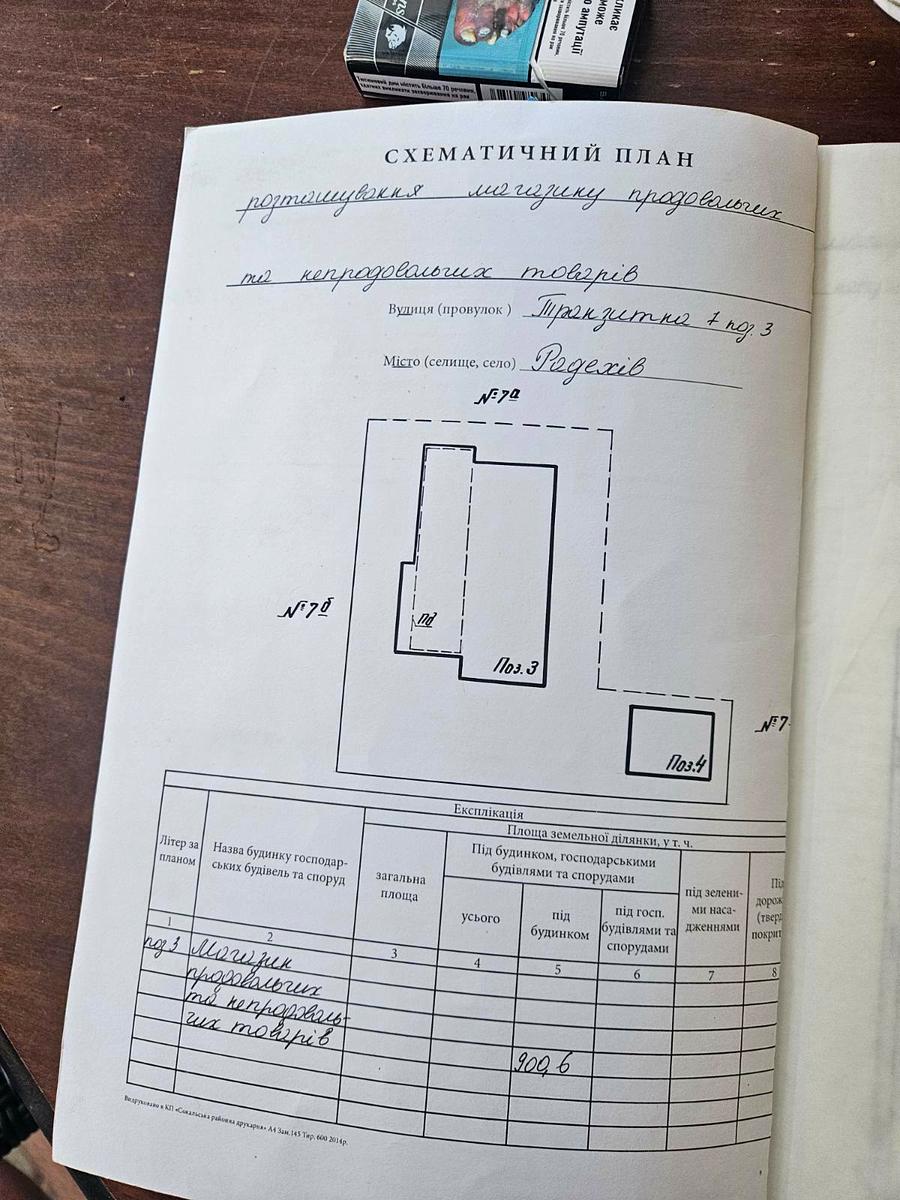 кликає
може
о ампутації
Тютюновий дим містить більше 70 речовин,
здатних викликати захворювання на рак
СХЕМАТИЧНИЙ ПЛАН
розташування магазину продовольчих
та непродовольчих товарів
Вулиця (провулок ) Транзитна 7 поз. 3
Місто (селище, село) Радехів
№7а
№7б
пд
Поз.3
№7
Поз.4
Експлікація
Літер за планом
Назва будинку господар-
ських будівель та споруд
Площа земельної ділянки, у т. ч.
загальна
площа
Під будинком, господарськими
будівлями та спорудами
усього
під
будинком
під госп.
будівлями та
спорудами
під зелени-
ми наса-
дженнями
Під
дорож
(тверд
покрит
1 2 3 4 5 6 7 8
поз 3 Магазин
продовольчих
та непродоволь-
чих товарів
900,6
Видруковано в КП «Сокальська районна друкарня» А4 Зам.145 Тир. 600 2014р.